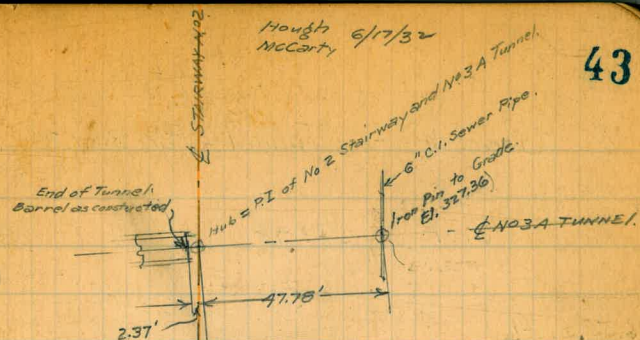 Hough 6/17/32
McCarty
43
℄ STAIRWAY No2
Hub = P.I of No 2 Stairway and No 3 A Tunnel.
6" C.I. Sewer Pipe.
Iron Pin to Grade.
El. 327.36)
End of Tunnel
Barrel as constructed
℄ No 3 A TUNNEL.
47.78'
2.37'